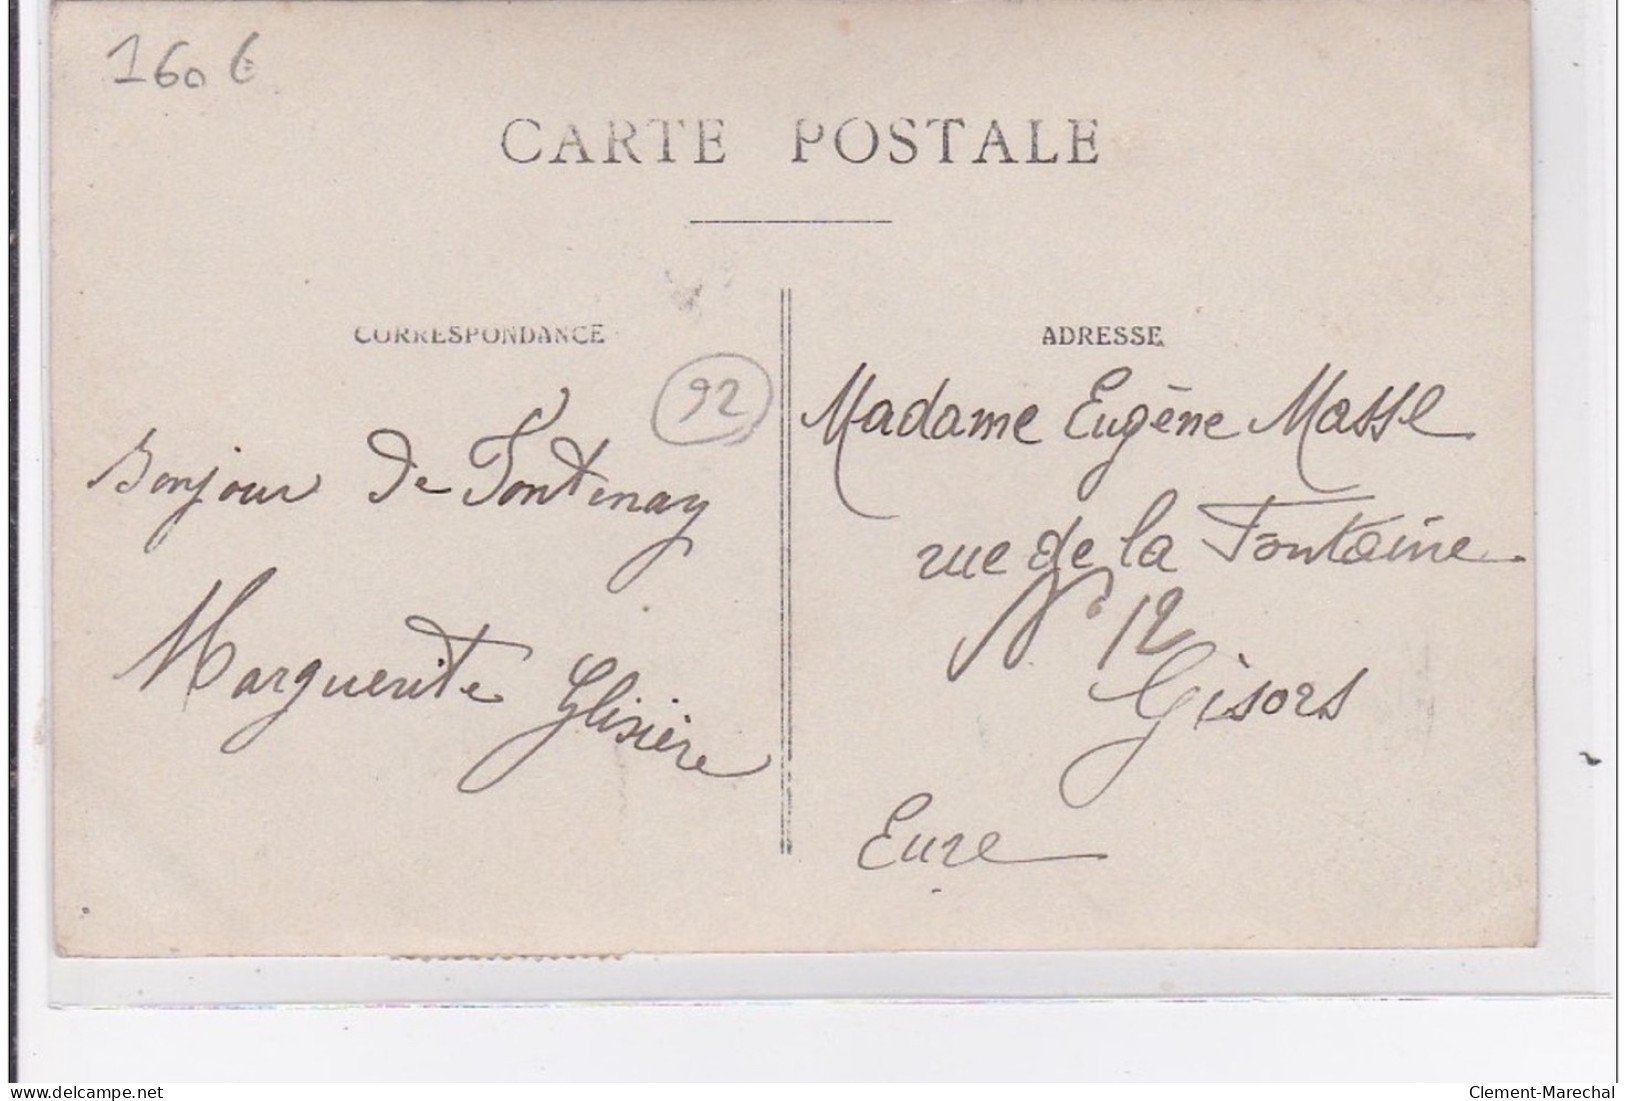 160 €
CARTE POSTALE
CORRESPONDANCE
92
Bonjour de Fontenay
Marguerite Glisière
ADRESSE
Madame Eugène Masse
rue de la Fontaine
N° 12
Gisors
Eure
www.delcampe.net
Clement-Marechal